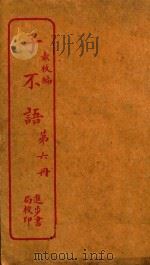 袁枚編
子不語
第六冊
進步書
局校印